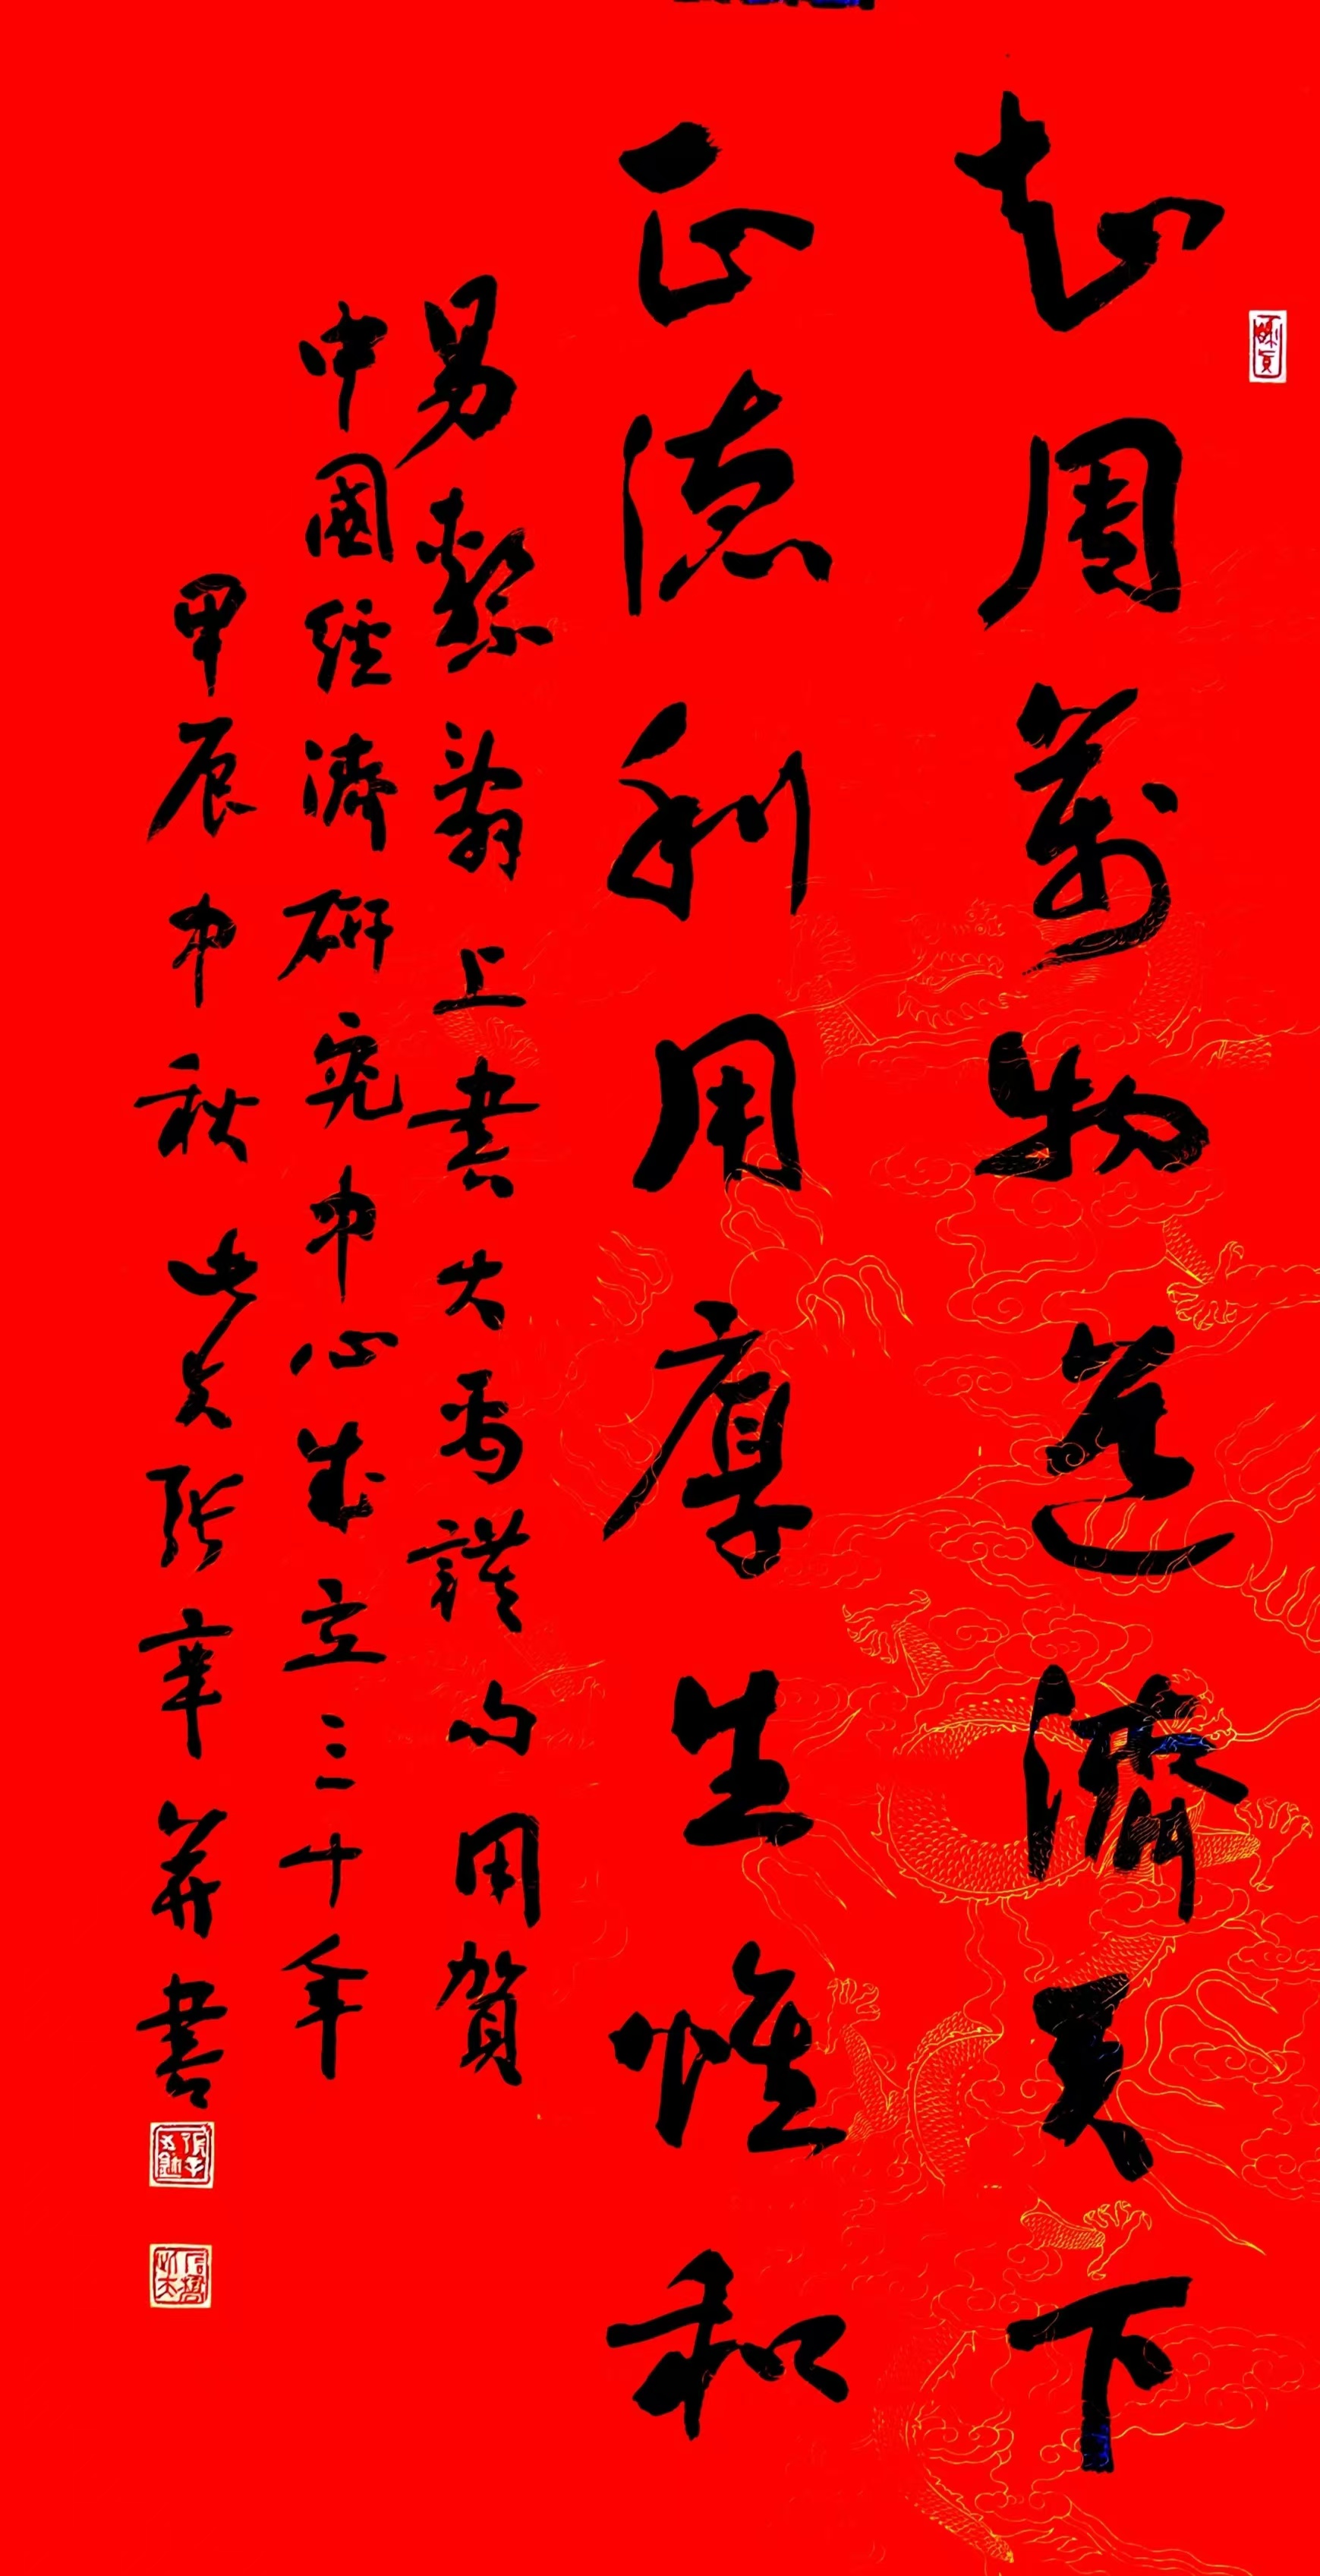 知周萬物道濟天下
正德利用厚生惟和
易繫辭上書大禹謨句用賀
中國經濟研究中心成立三十年
甲辰中秋張辛并書